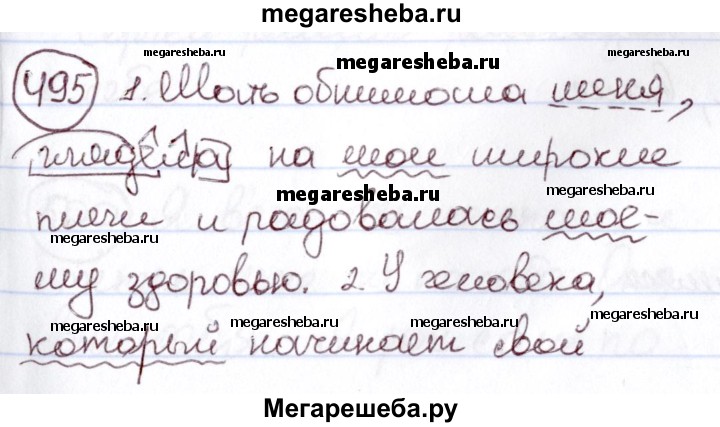 megaresheba.ru
megaresheba.ru megaresheba.ru
megaresheba.ru
495 1. Мать обнимала меня,
глядела на мои широкие
megaresheba.ru
megaresheba.ru megaresheba.ru
плечи и радовалась мое-
megaresheba.ru
му здоровью. 2. У человека,
megaresheba.ru megaresheba.ru megaresheba.ru
который начинает свой
Мегарешеба.ру